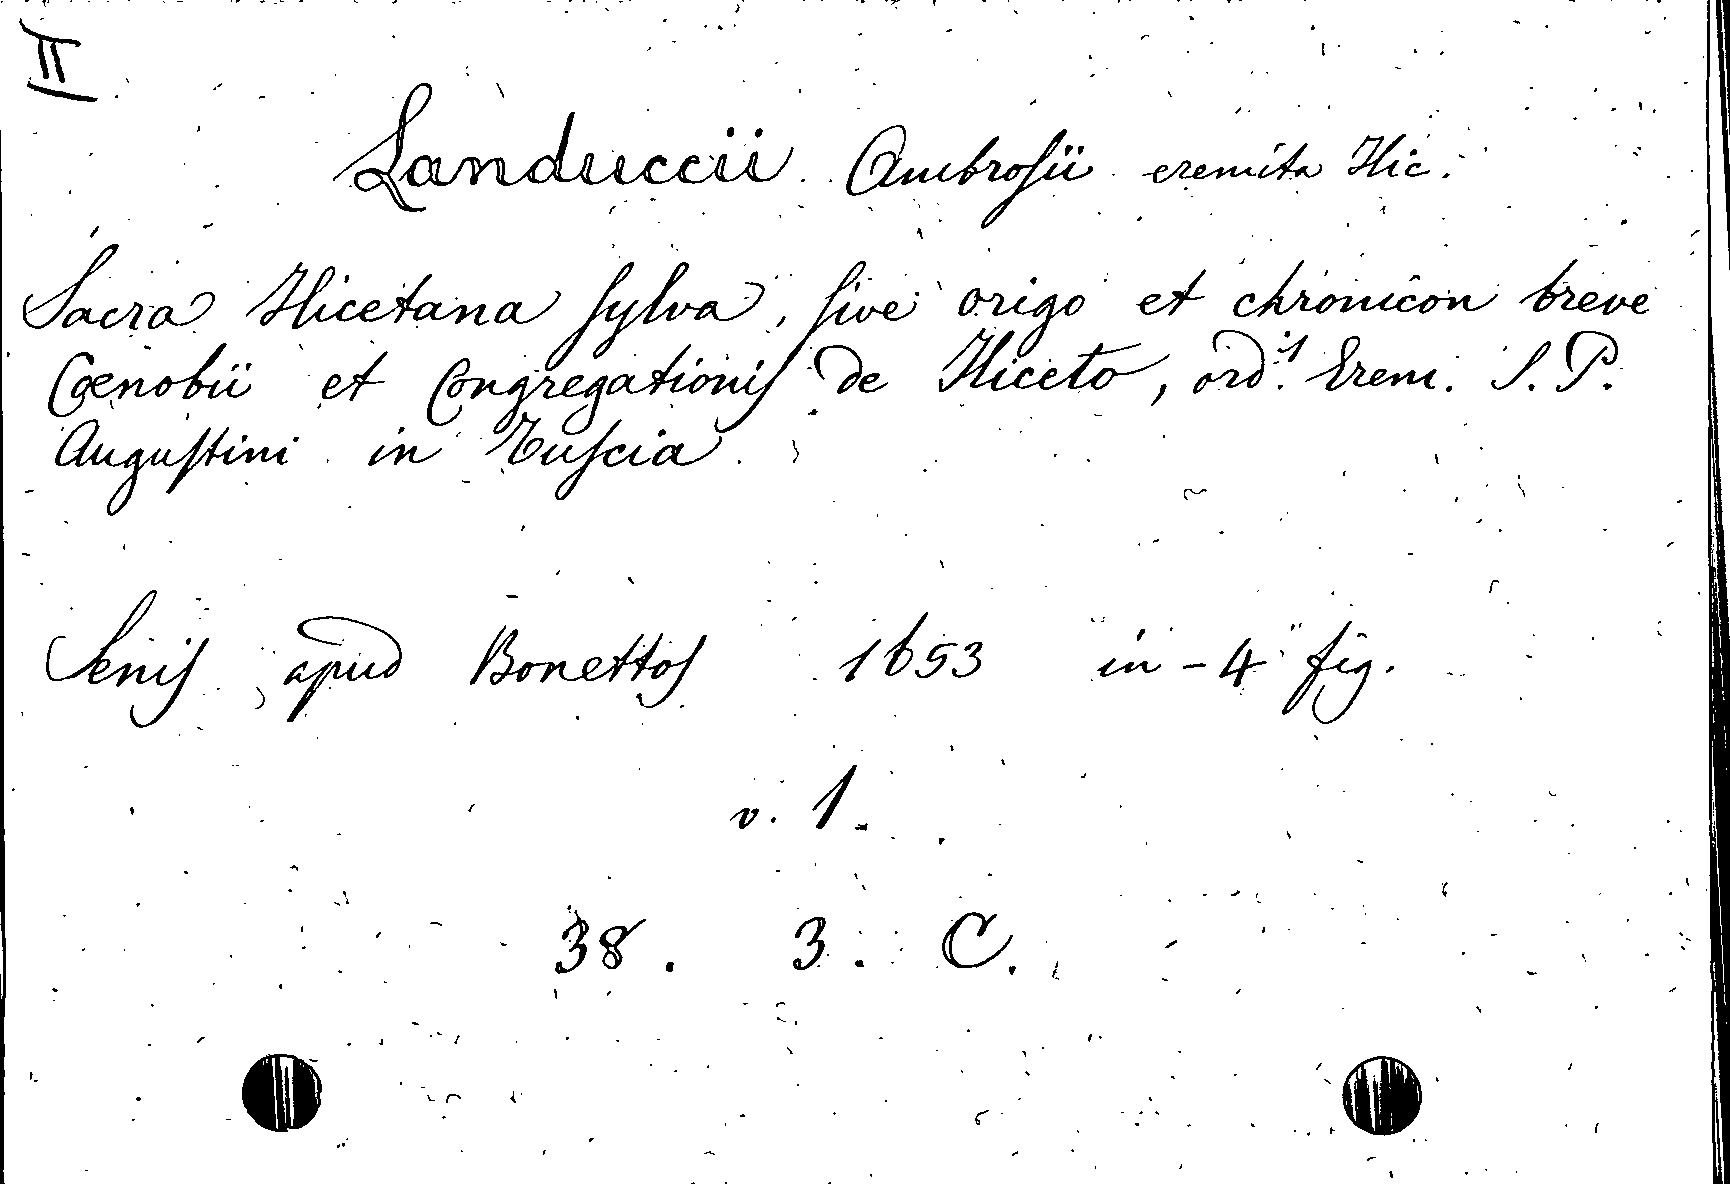 II
Landuccii Ambrosii eremita Ilic.
Sacra Ilicetana sylva, sive origo et chronicon breve
Coenobii et Congregationis de Iliceto, ord.⁠is Erem. S. P.
Augustini in Tuscia
Senis apud Bonettos 1653 in-4 fig.
v. 1.
38. 3. C.